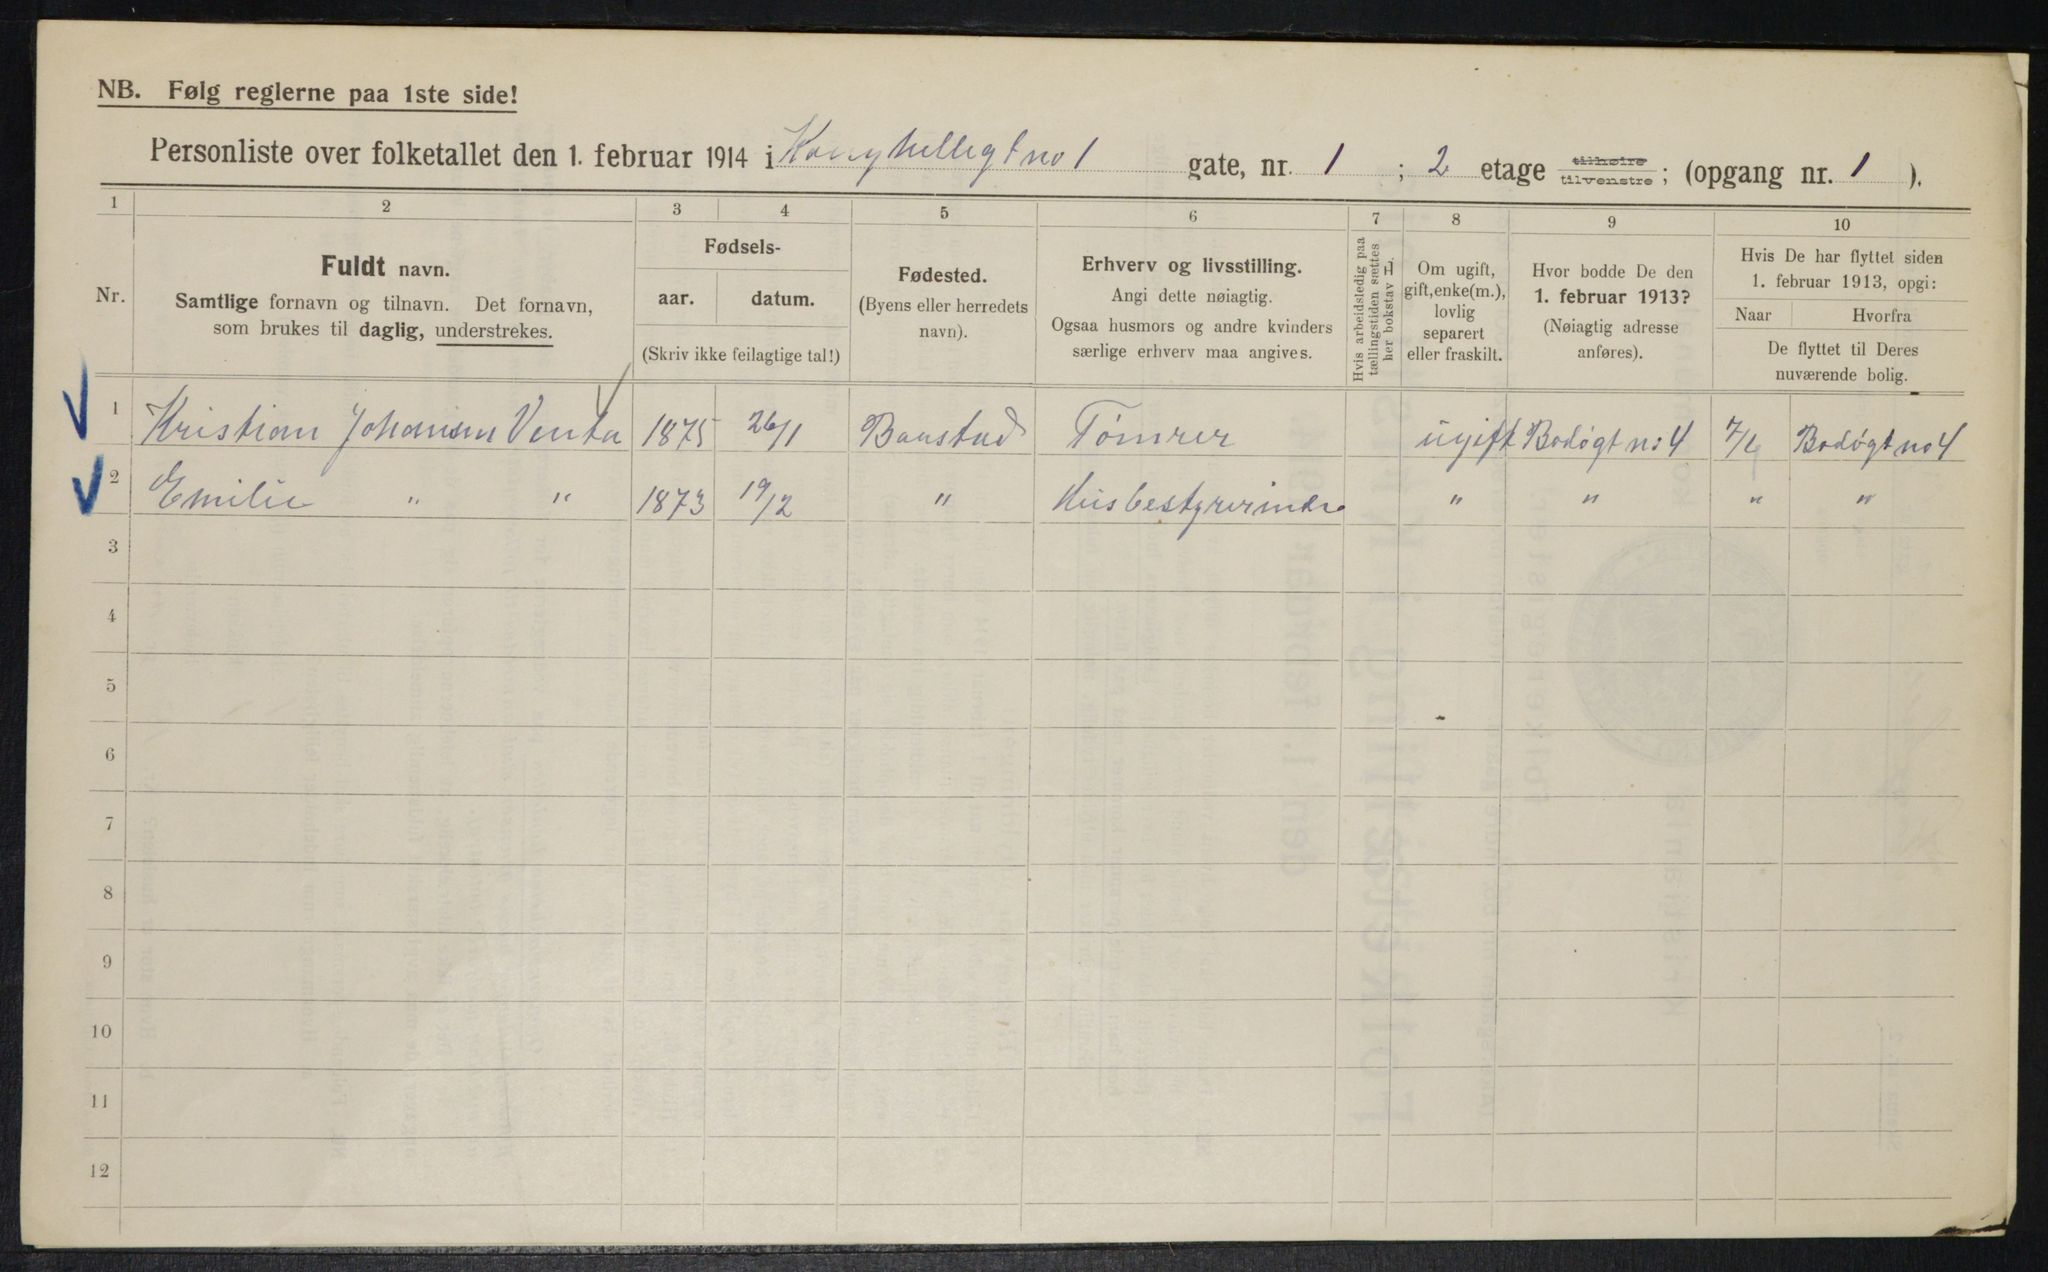 NB. Følg reglerne paa 1ste side!
Personliste over folketallet den 1. februar 1914 i Konghellegt no 1 gate, nr. 1 ; 2 etage tilhøire tilvenstre ; (opgang nr. 1 ).
1 2 3 4 5 6 7 8 9 10
Nr.
Fuldt navn.
Samtlige fornavn og tilnavn. Det fornavn,
som brukes til daglig, understrekes.
Fødsels-
aar. datum.
(Skriv ikke feilagtige tal!)
Fødested.
(Byens eller herredets
navn).
Erhverv og livsstilling.
Angi dette nøiagtig.
Ogsaa husmors og andre kvinders
særlige erhverv maa angives.
Hvis arbeidsledig paa
tællingstiden sættes
her bokstav L.
Om ugift,
gift, enke(m.),
lovlig
separert
eller fraskilt.
Hvor bodde De den
1. februar 1913?
(Nøiagtig adresse
anføres).
Hvis De har flyttet siden
1. februar 1913, opgi:
Naar Hvorfra
De flyttet til Deres
nuværende bolig.
1 Kristian Johansen 1875 26/1 Baastad Tømrer ugift Bodøgt no 4 Bodøgt no 4
2 Emilie " " 1873 19/2 " Husbestyrerinde " " " "
3
4
5
6
7
8
9
10
11
12